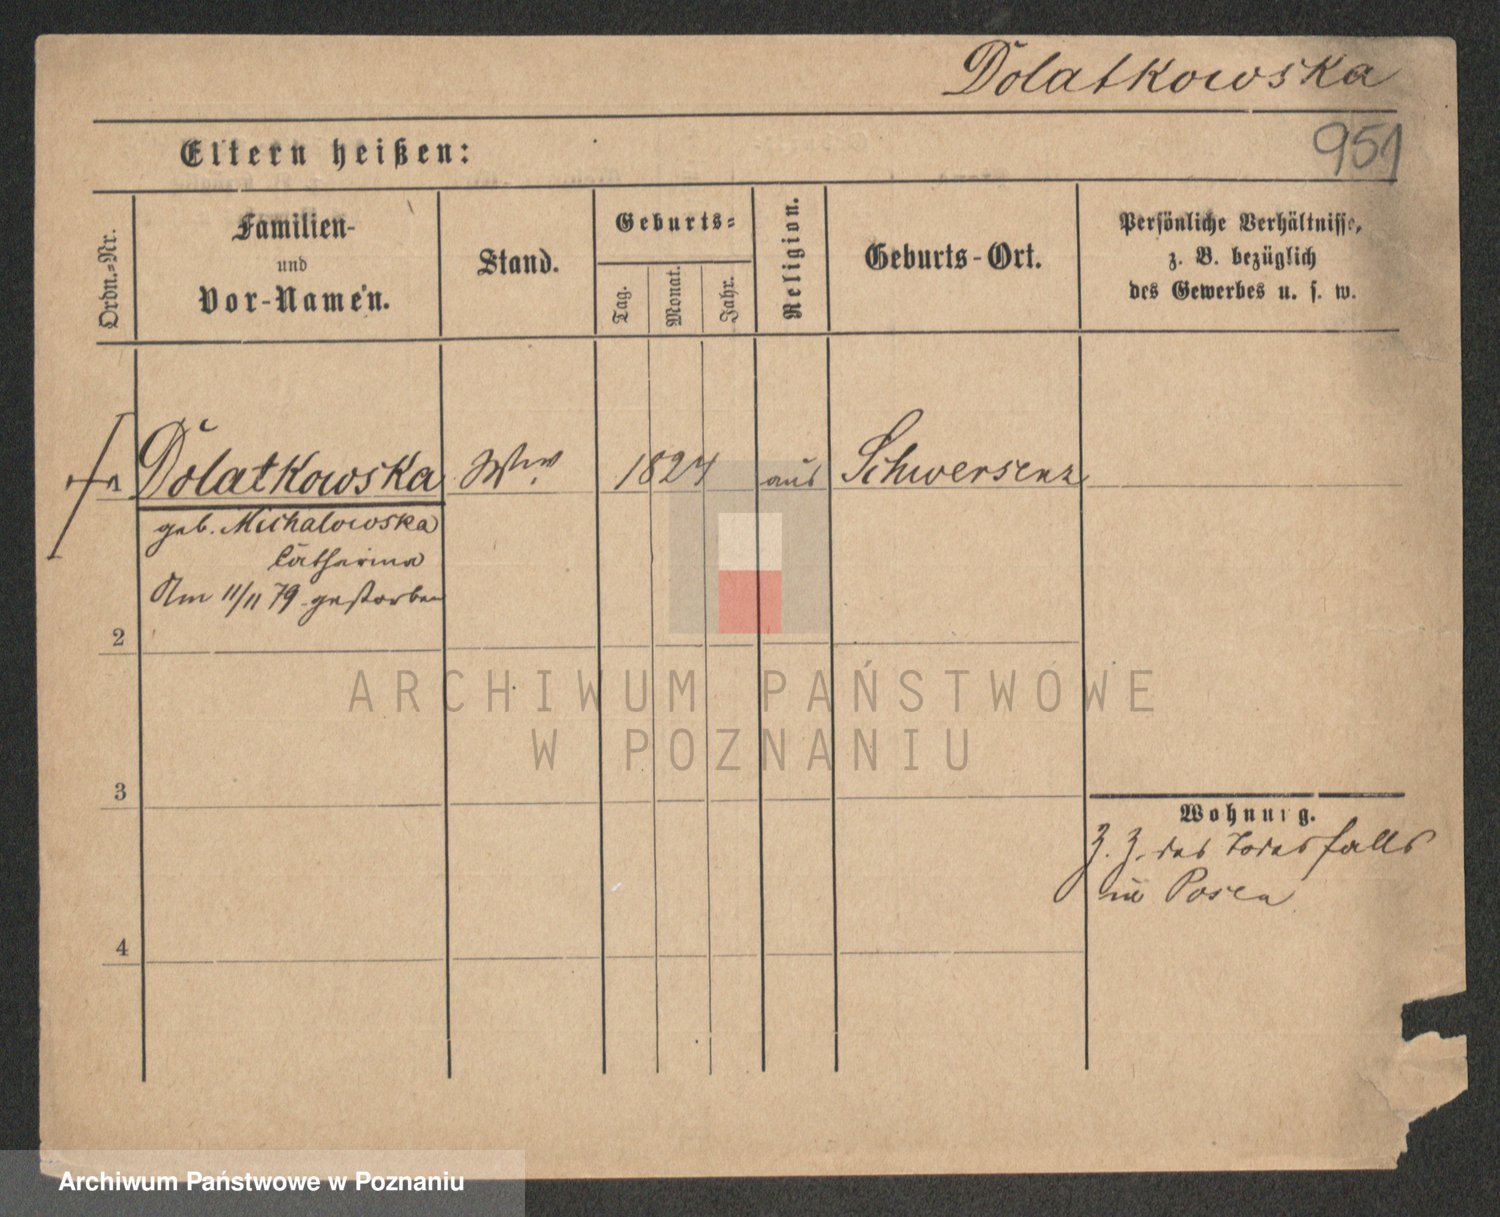 Dolatkowska
951
Eltern heißen:
Ordn.-Nr.
Familien-
und
Vor-Namen.
Stand.
Geburts-
Tag.
Monat.
Jahr.
Religion.
Geburts-Ort.
Persönliche Verhältnisse,
z. B. bezüglich
des Gewerbes u. s. w.
Dolatkowska Ww. 1824 aus Schwersenz
geb. Michalowska
Catharina
Am 11/11 79 gestorben
2
3
4
Wohnung.
Z. Z. des Todesfalls
in Posen
ARCHIWUM PAŃSTWOWE
W POZNANIU
Archiwum Państwowe w Poznaniu